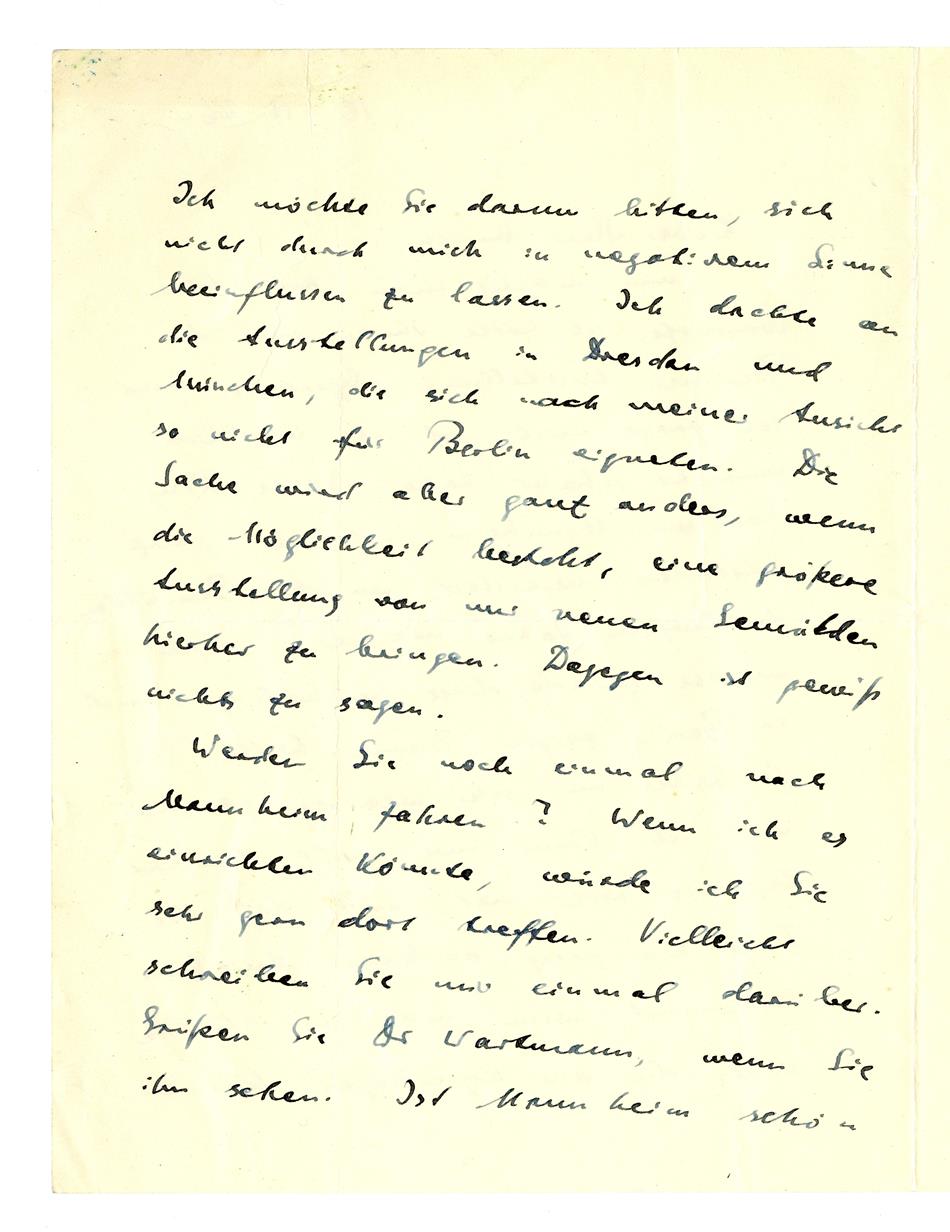 Ich möchte Sie darum bitten, sich
nicht durch mich in negativem Sinne
beeinflussen zu lassen. Ich dachte an
die Ausstellungen in Dresden und
München, die sich nach meiner Ansicht
so nicht für Berlin eigneten. Die
Sache wird aber ganz anders, wenn
die Möglichkeit besteht, eine größere
Ausstellung von nur neuen Gemälden
hierher zu bringen. Dagegen ist gewiß
nichts zu sagen.
Werden Sie noch einmal nach
Mannheim fahren? Wenn ich es
einrichten könnte, würde ich Sie
sehr gern dort treffen. Vielleicht
schreiben Sie mir einmal darüber.
Grüßen Sie Dr Wartmann, wenn Sie
ihn sehen. Ist Mannheim schon